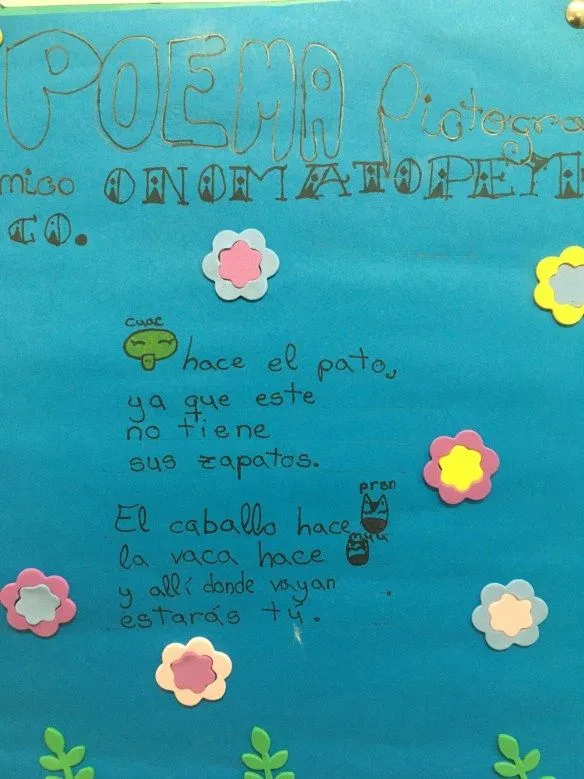 POEMA Pictogra
mico ONOMATOPEYI
CO.
cuac
hace el pato,
ya que este
no tiene
sus zapatos.
prsn
El caballo hace
muu
la vaca hace
y allí donde vayan
estarás tú.